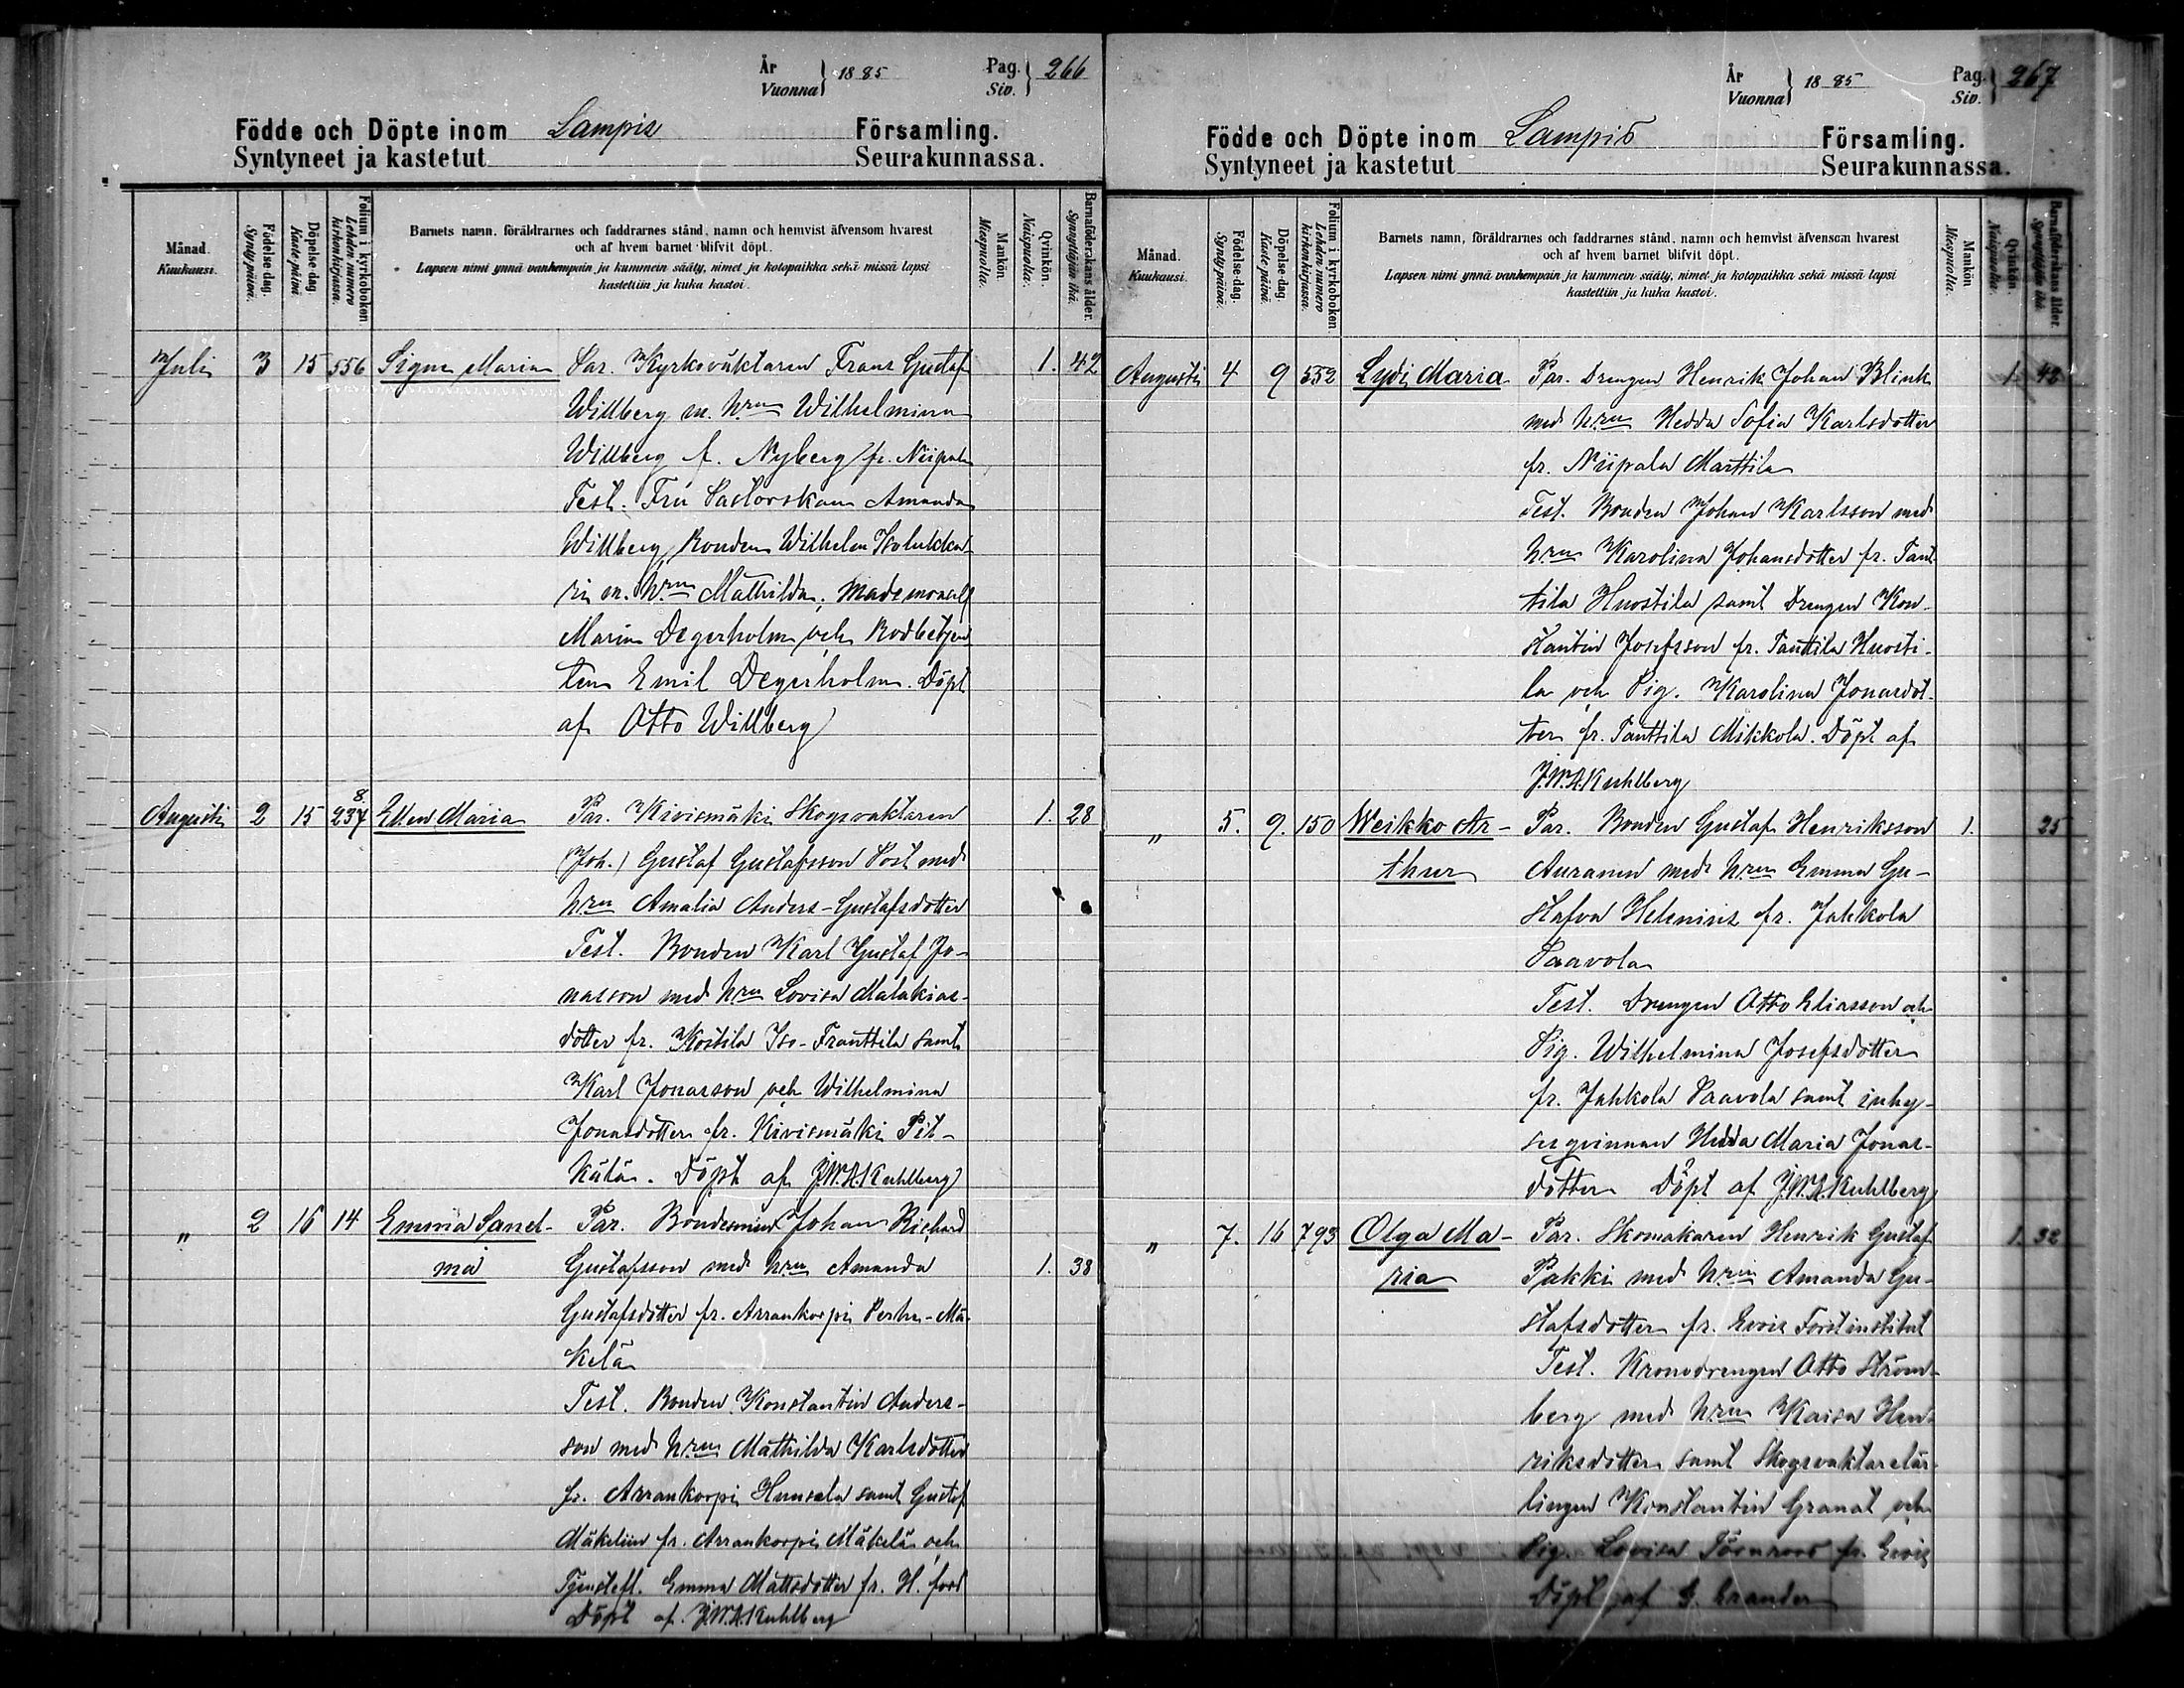 År
Vuonna } 1885
Pag.
Siv. } 266
Födde och Döpte inom Lampis Församling.
Syntyneet ja kastetut Seurakunnassa.
Månad.
Kuukausi.
Födelse-dag.
Synty päivä.
Döpelse-dag.
Kaste päivä
Folium i kyrkoboken
Lehden numero
kirkonkirjassa.
Barnets namn, föräldrarnes och faddrarnes stånd, namn och hemvist äfvensom hvarest
och af hvem barnet blifvit döpt.
Lapsen nimi ynnä vanhempain ja kummein sääty, nimet ja kotopaikka sekä missä lapsi
kastettiin ja kuka kastoi.
Mankön.
Miespuolia.
Qvinkön.
Naispuolia.
Barnaföderskans ålder.
Synnyttäjän ikä.
Juli 3 15 556 Signe Maria Par. Kyrkoväktaren Frans Gustaf 1. 42
Willberg m. hrun Wilhelmina
Willberg f. Nyberg fr. Niipala
Test. Fru Pastorskan Amanda
Willberg, Bonden Wilhelm Isolukka
ri m. hrun Mathilda, Mademoisell
Maria Degerholm och Bodbetjen
ten Emil Degerholm. Döpt
af Otto Willberg
Augusti 2 15 237 8. Ellen Maria Par. Kivismäki Skogsvaktaren 1. 28
(Joh.) Gustaf Gustafsson Post med
hrun Amalia Anders-Gustafsdotter
Test. Bonden Karl Gustaf Jo-
nasson med hrun Lovisa Malakias-
dotter fr. Kostila Iso-Franttila samt
Karl Jonasson och Wilhelmina
Jonasdotter fr. Kivismäki Pit-
kälä. Döpt af J.W.A.Kuhlberg
" 2 16 14 Emma Sand- Par. Bondesonen Johan Richard
ma Gustafsson med hrun Amanda 1. 38
Gustafsdotter fr. Arrankorpi Perhe-Mä-
kelä
Test. Bonden Konstantin Anders-
son med hrun Mathilda Karlsdotter
fr. Arrankorpi Hunsala samt Gustaf
Mäkelin fr. Arrankorpi Mäkelä och
Tjensteft. Emma Mattsdotter fr. H.fors
Döpt af J.W.A.Kuhlberg
År
Vuonna } 1885
Pag.
Siv. } 267
Födde och Döpte inom Lampis Församling.
Syntyneet ja kastetut Seurakunnassa.
Månad.
Kuukausi.
Födelse-dag.
Synty päivä.
Döpelse-dag.
Kaste päivä.
Folium i kyrkoboken
Lehden numero
kirkonkirjassa.
Barnets namn, föräldrarnes och faddrarnes stånd, namn och hemvist äfvensom hvarest
och af hvem barnet blifvit döpt.
Lapsen nimi ynnä vanhempain ja kummein sääty, nimet ja kotopaikka sekä missä lapsi
kastettiin ja kuka kastoi.
Mankön
Miespuolia.
Qvinkön.
Naispuolia.
Barnaföderskans ålder.
Synnyttäjän ikä.
Augusti 4 9 552 Lydi Maria Par. Drengen Henrik Johan Blink 1. 42
med hrun Hedda Sofia Karlsdotter
fr. Niipala Marttila
Test. Bonden Johan Karlsson med
hrun Karolina Johansdotter fr. Tant-
tila Huostila samt Drengen Kon-
stantin Josefsson fr. Tanttila Huosti-
la och Pig. Karolina Jonasdot-
ter fr. Tanttila Mikkola. Döpt af
J.W.A.Kuhlberg
" 5. 9. 150 Weikko Ar- Par. Bonden Gustaf Henriksson 1. 25
thur Auranen med hrun Emma Gu-
stafva Helenius fr. Jahkola
Paavola
Test. Drengen Otto Eliasson och
Pig. Wilhelmina Josefsdotter
fr. Jahkola Paavola samt inhy-
sesqvinnan Hedda Maria Jonas-
dotter Döpt af J.W.A.Kuhlberg
" 7. 16 793 Olga Ma- Par. Skomakaren Henrik Gustaf 1. 32
ria Pakki med hrun Amanda Gu-
stafsdotter fr. Evois Forstinstitut
Test. Kronodrengen Otto Ström-
berg med hrun Kaisa Hen-
riksdotter samt Skogsvaktarelär-
lingen Konstantin Granat och
Pig. Lovisa Törnroos fr. Evois
Döpt af G. Erander